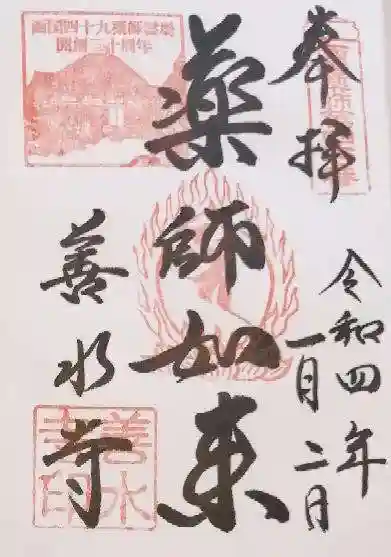 奉拝
令和四年
一月二日
薬師如来
善水寺
西国四十九薬師霊場
開創三十周年
善水寺印